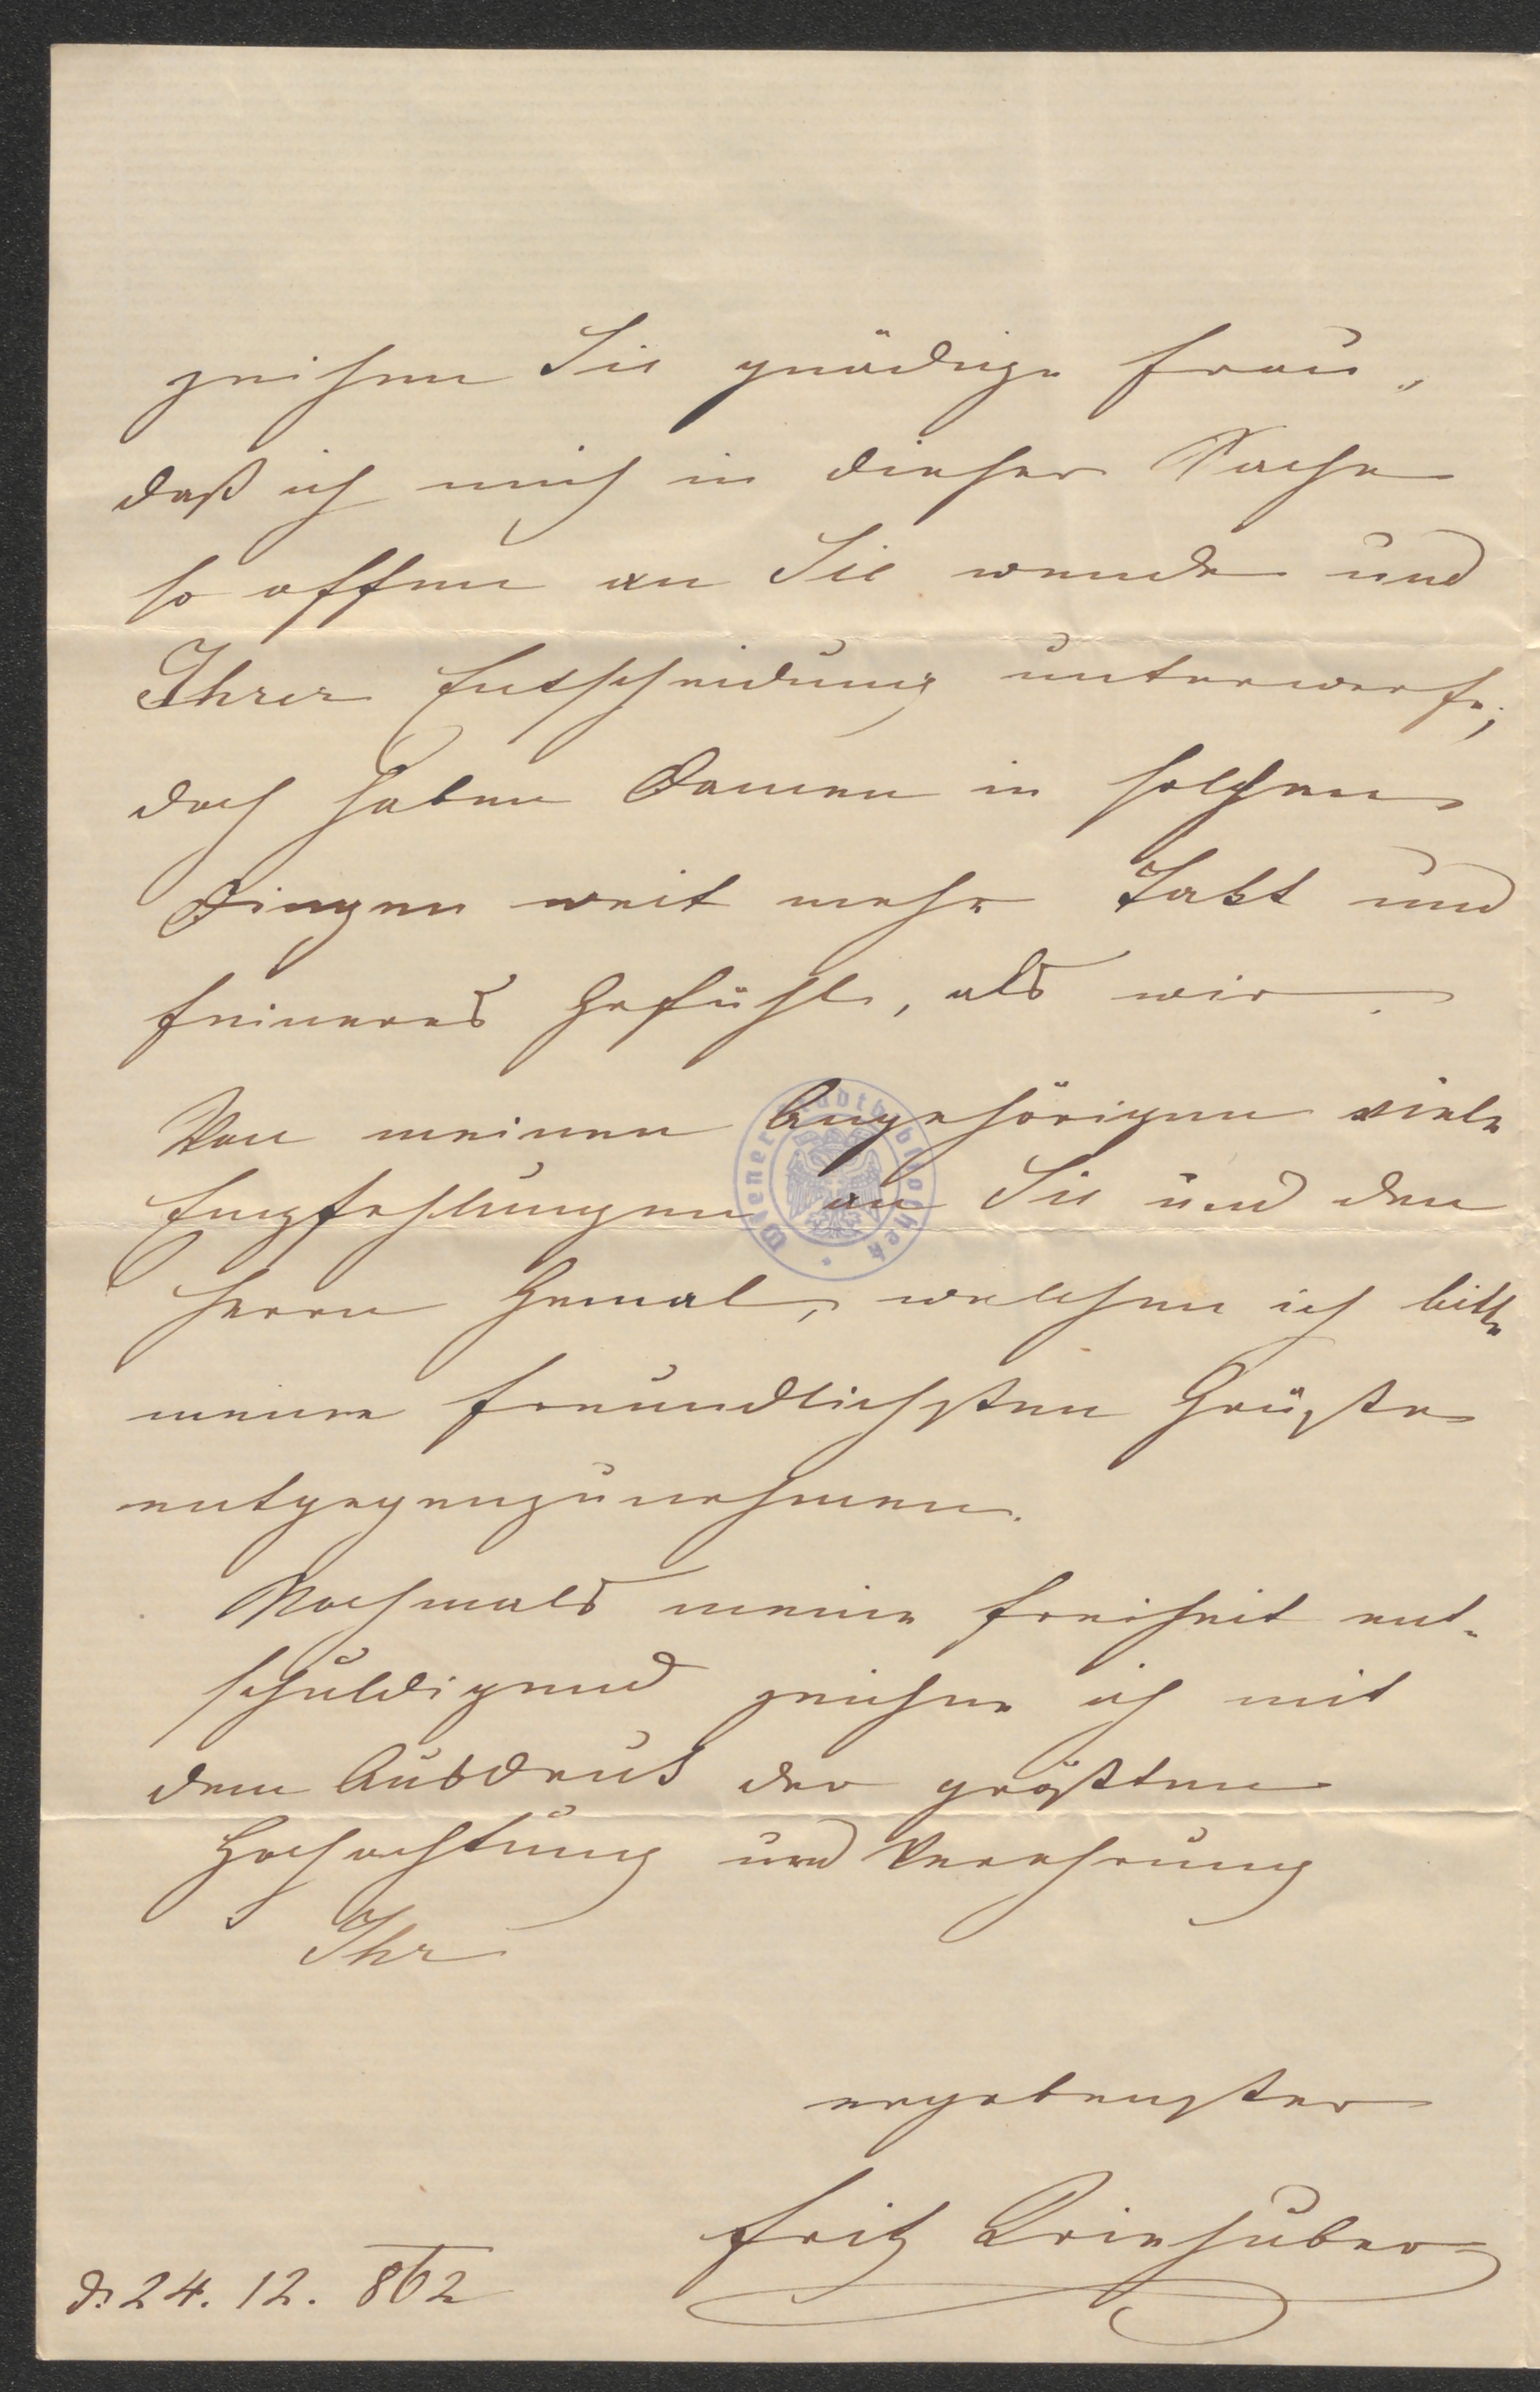 zeihen Sie gnädige Frau,
daß ich mich in dieser Sache
so offen an Sie wende und
Ihrer Entscheidung unterwerfe;
doch haben Damen in solchen
Dingen weit mehr Takt und
feineres Gefühl, als wir.
Von meinen Angehörigen viele
Empfehlungen an Sie und den
Herrn Gemal, welchen ich bitte
meine freundlichsten Grüße
entgegenzunehmen.
Nochmals meine Freiheit ent-
schuldigend zeichne ich mit
dem Ausdruck der größten
Hochachtung und Verehrung
Ihr
ergebenster
Fritz Kriehuber
d. 24. 12. 862
Wiener Stadtbibliothek